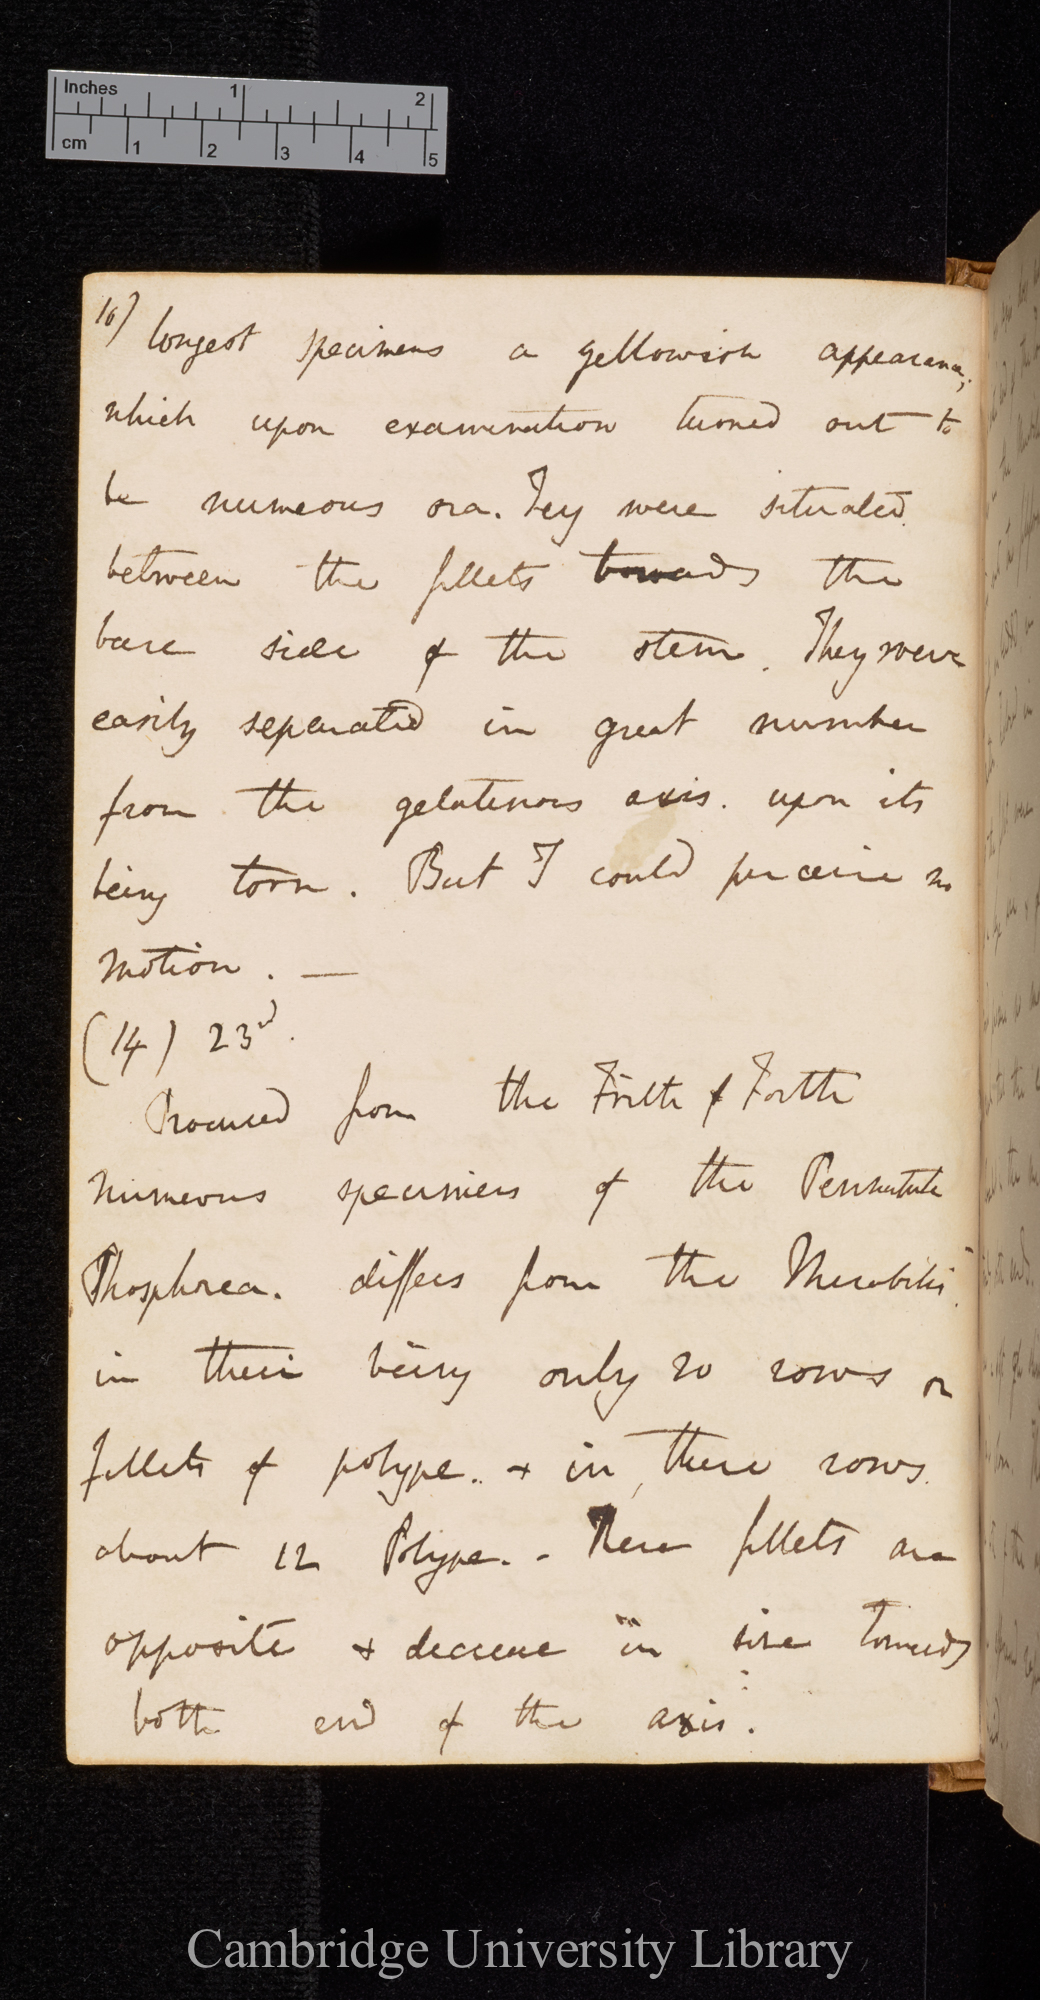 Inches 1 2
cm 1 2 3 4 5
16) longest specimens a yellowish appearance,
which upon examination turned out to
be numerous ova. They were situated
between the fillets towards the
bare side of the stem. They were
easily separated in great number
from the gelatinous axis. upon its
being torn. But I could perceive no
motion. —
(14) 23d.
Procured from the Frith of Forth
numerous specimens of the Pennatula
Phosphorea. differs from the Mirabilis
in their being only 20 rows or
fillets of polype.. & in, these rows.
about 12 Polype. - These fillets are
opposite & decrease in size towards
both end of the axis.
Cambridge University Library